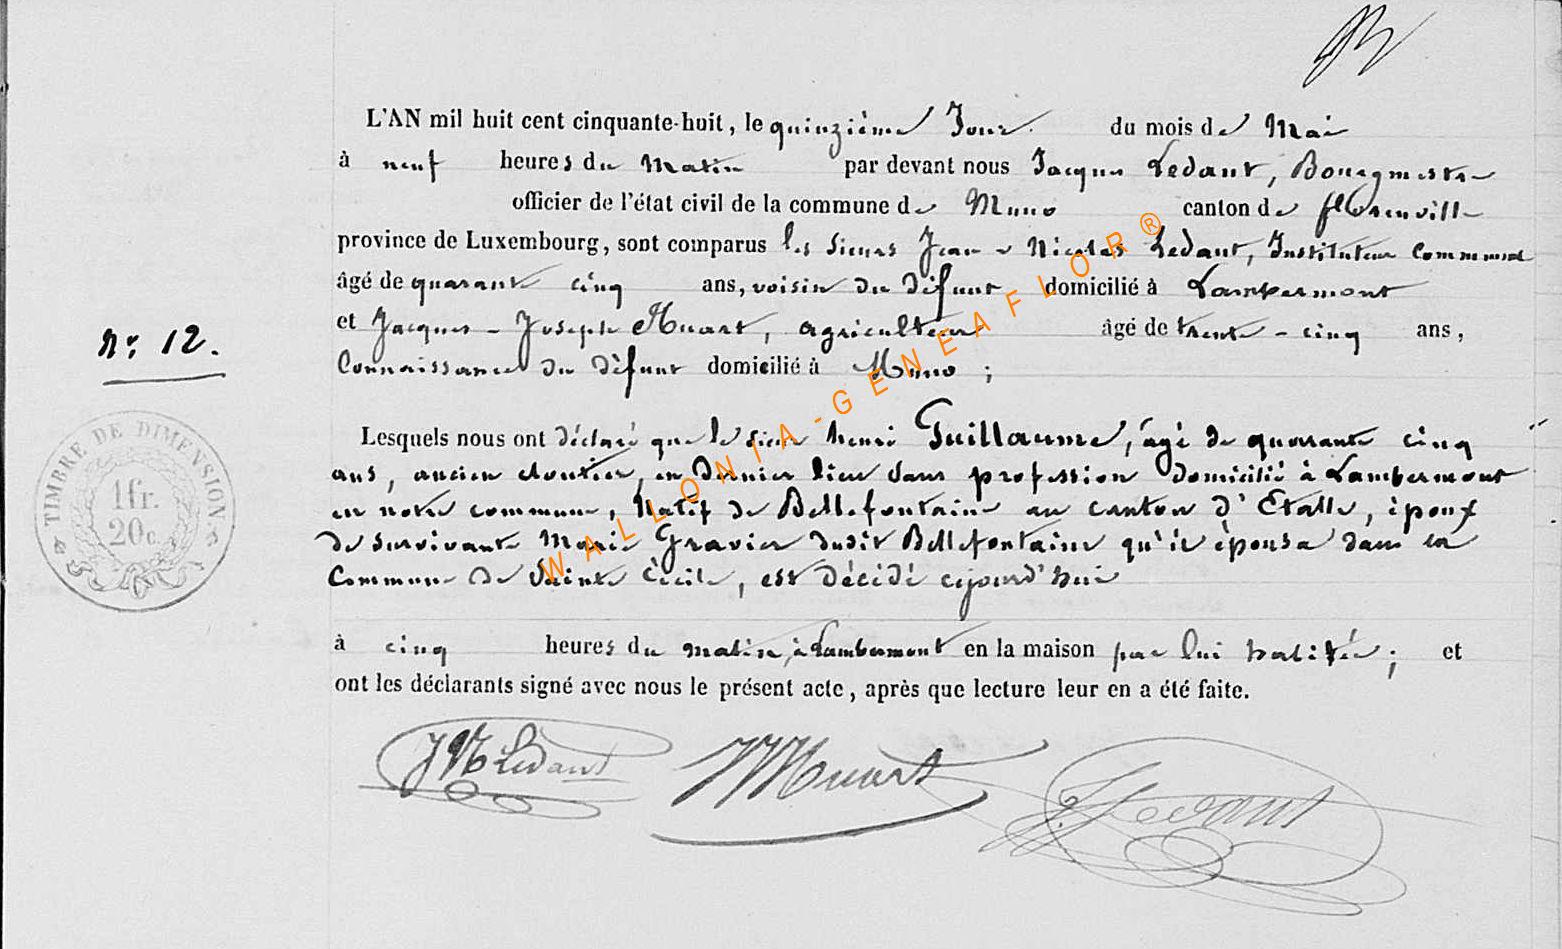 L'AN mil huit cent cinquante-huit, le quinzième Jour du mois de Mai
à neuf heures du Matin par devant nous Jacques Ledant, Bourgmestre
officier de l'état civil de la commune de Muno canton de florenville
province de Luxembourg, sont comparus les Sieurs Jean-Nicolas Ledant, Instituteur Communal
âgé de quarante cinq ans, voisin du défunt domicilié à Lambermont
et Jacques-Joseph Huart, agriculteur âgé de trente-cinq ans,
Connaissance du défunt domicilié à Muno ;
n° 12.
Lesquels nous ont déclaré que le sieur henri Guillaume, âgé de quarante cinq
ans, ancien cloutier, en dernier lieu sans profession domicilié à Lambermont
en notre commune, Natif de Bellefontaine au canton d'Etalle, époux
de survivante Marie Gravier dudit Bellefontaine qu'il épousa dans la
Commune de Sainte Cécile, est décédé cejourd'hui
à cinq heures du matin, à Lambermont en la maison par lui habitée ; et
ont les déclarants signé avec nous le présent acte, après que lecture leur en a été faite.
JN Ledant JJ Huart J. Ledant
TIMBRE DE DIMENSION
1 fr.
20 c.
WALLONIA-GENEAFLOR®